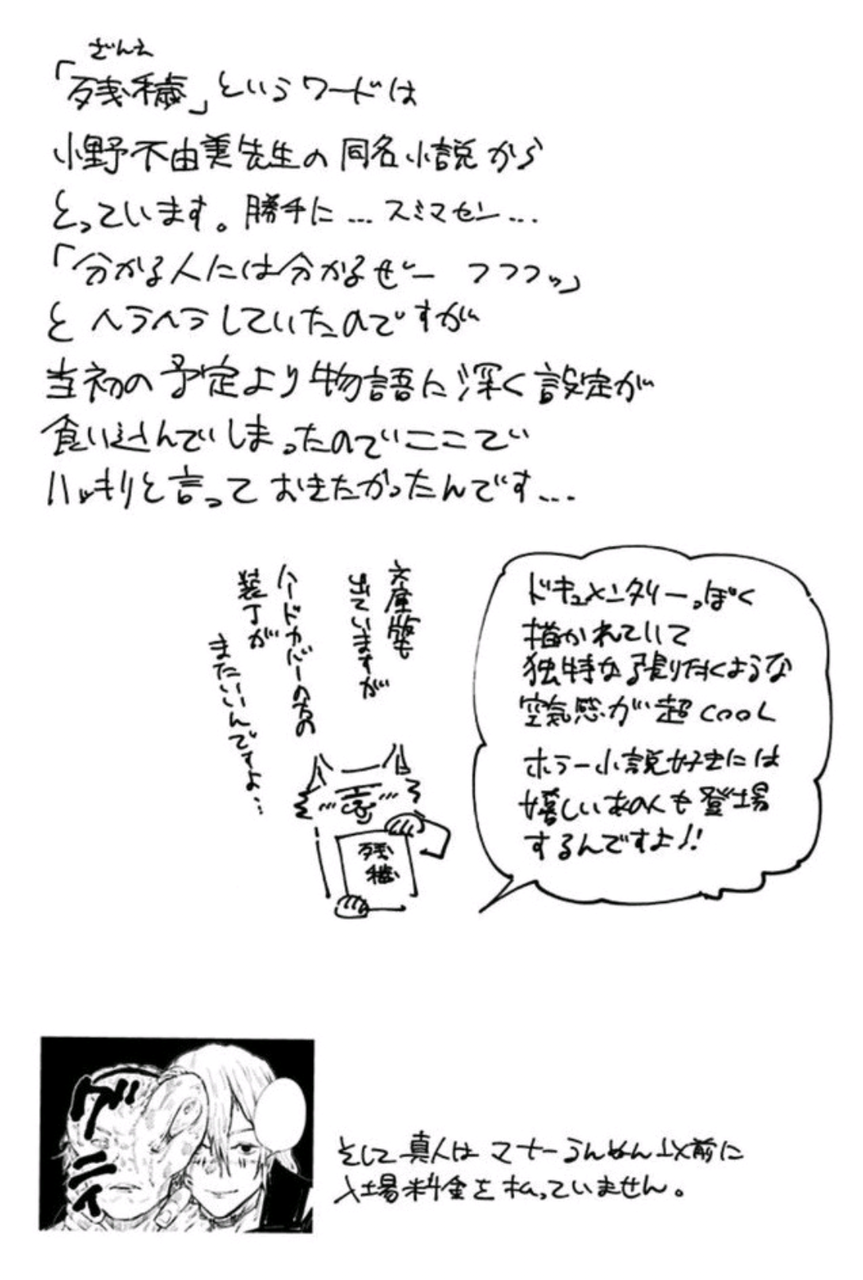 ざんえ
「残穢」というワードは
小野不由美先生の同名小説から
とっています。勝手に…スミマセン…
「分かる人には分かるぜー フフフッ」
と ヘラヘラしていたのですが
当初の予定より物語に深く設定が
食い込んでしまったのでここで
ハッキリと言っておきたかったんです…
ドキュメンタリーっぽく
描かれていて
独特な張り付くような
空気感が超cooL
ホラー小説好きには
嬉しいあの人も登場
するんですよ!!
文庫版も
出ていますが
ハードカバーの方の
装丁が
またいいんですよ…
残
穢
グニィ
そして真人はマナーうんぬん以前に
入場料金を払っていません。